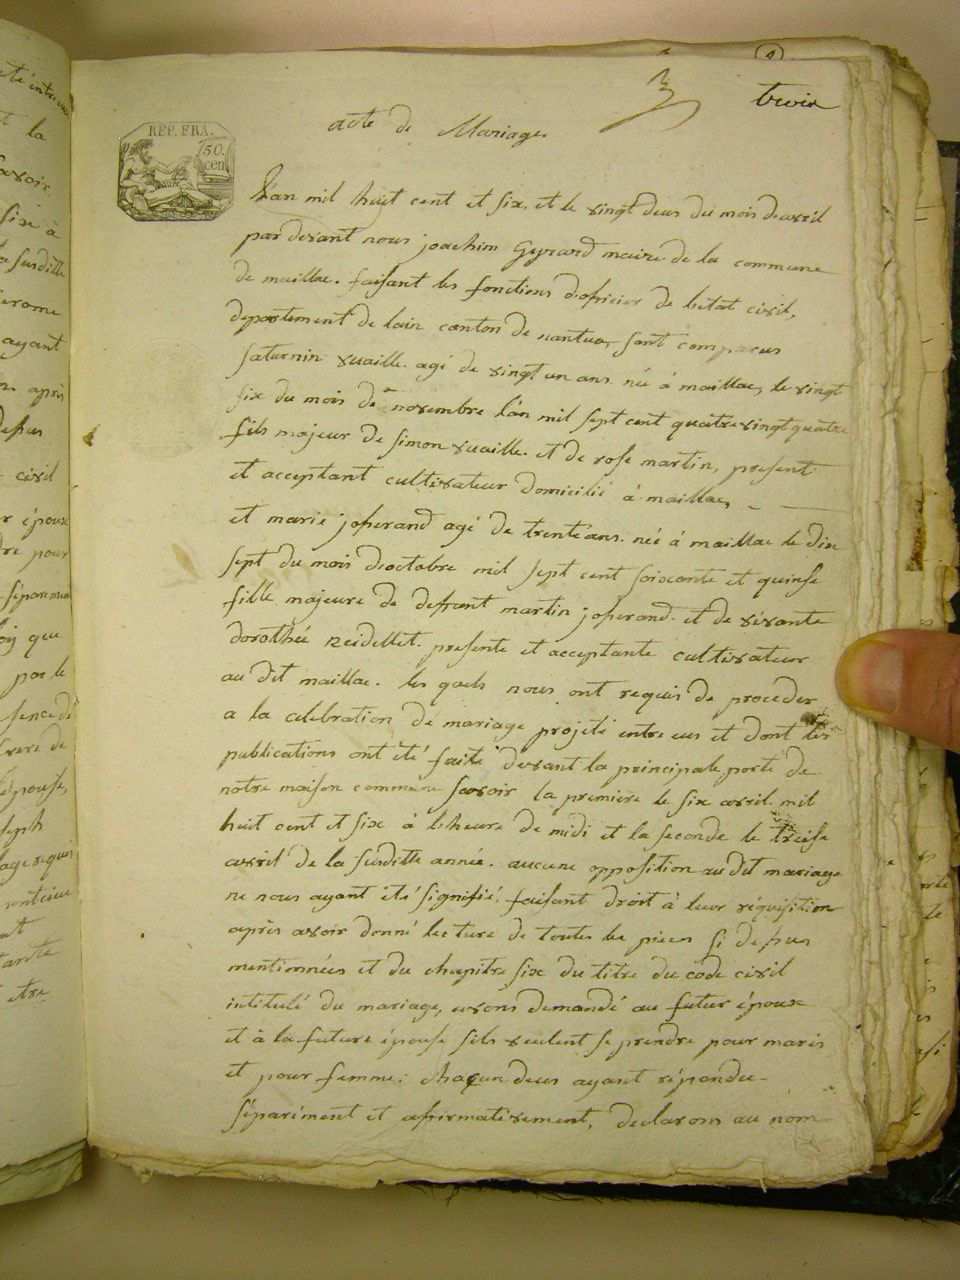 3
trois
acte de Mariage
REP. FRA.
50.
cen
L'an mil huit cent et six, et le vingt deux du mois davril
par devant nous joachim Gyrard maire de la commune
de maillac. faisant les fonctions doficier de letat civil,
departement de lain canton de nantua, sont comparus
saturnin vuaille. agé de vingt un ans. né à maillac, le vingt
six du mois de novembre l'an mil sept cent quatrevingt quatre
fils majeur de simon vuaille. et de rose martin, present
et acceptant cultivateur domicilié à maillac,
et marie joserand agé de trente ans. née à maillac le dix
sept du mois doctobre mil sept cent soixante et quinse
fille majeure de defeunt martin joserand. et de vivante
dorothée neidellet. presente et acceptante cultivateur
au dit maillac. les quels nous ont requis de proceder
a la celebration de mariage projeté entre eux et dont les
publications ont été faite devant la principale porte de
notre maison commune savoir la premiere le six avril mil
huit cent et six à l'heure de midi et la seconde le treise
avril de la susditte année. aucune opposition au dit mariage
ne nous ayant été signifié. faisant droit à leur réquisition
après avoir donné lecture de toutes les pieces si desus
mentionnées et du chapitre six du titre du code civil
intitulé du mariage, avons demandé au futur époux
et à la future épouse sils veulent se prendre pour maris
et pour femme; chaqun deux ayant répondu
séparément et afirmativement, declarons au nom